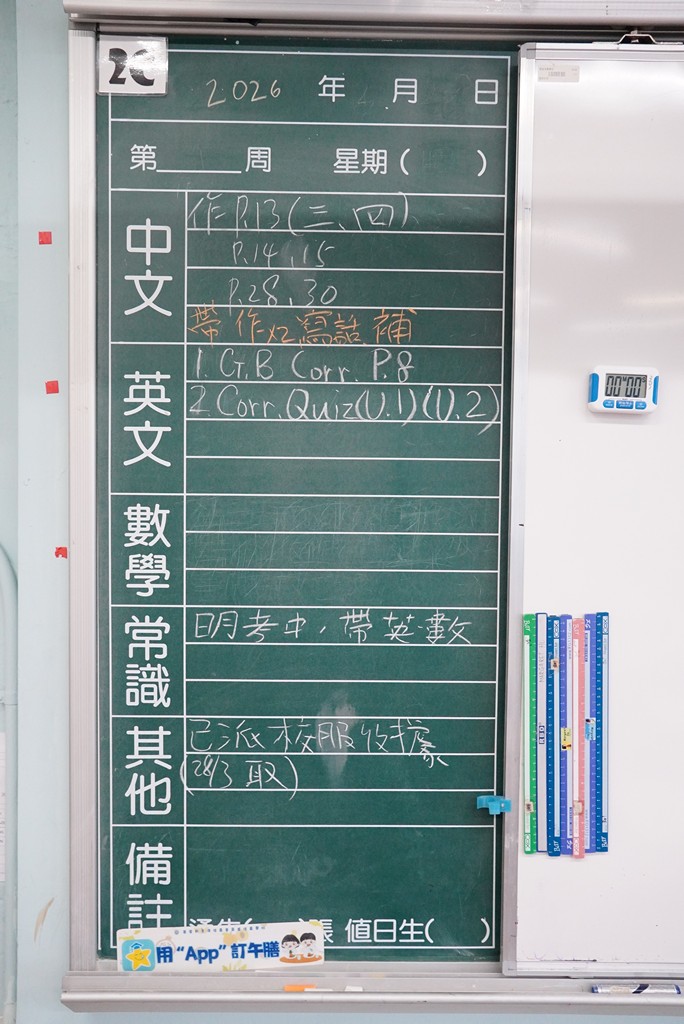 2C
2026 年 月 日
第 周 星期( )
中文
作 P.13(三、四)
P.14、15
P.28、30
帶 作x2 寫話 補
英文
1. G.B Corr. P.8
2. Corr. Quiz(U.1)(U.2)
數學
常識
明考中，帶英、數
其他
已派校服收據
(28/3 取)
備註
張 值日生( )
用“App”訂午膳
00 00